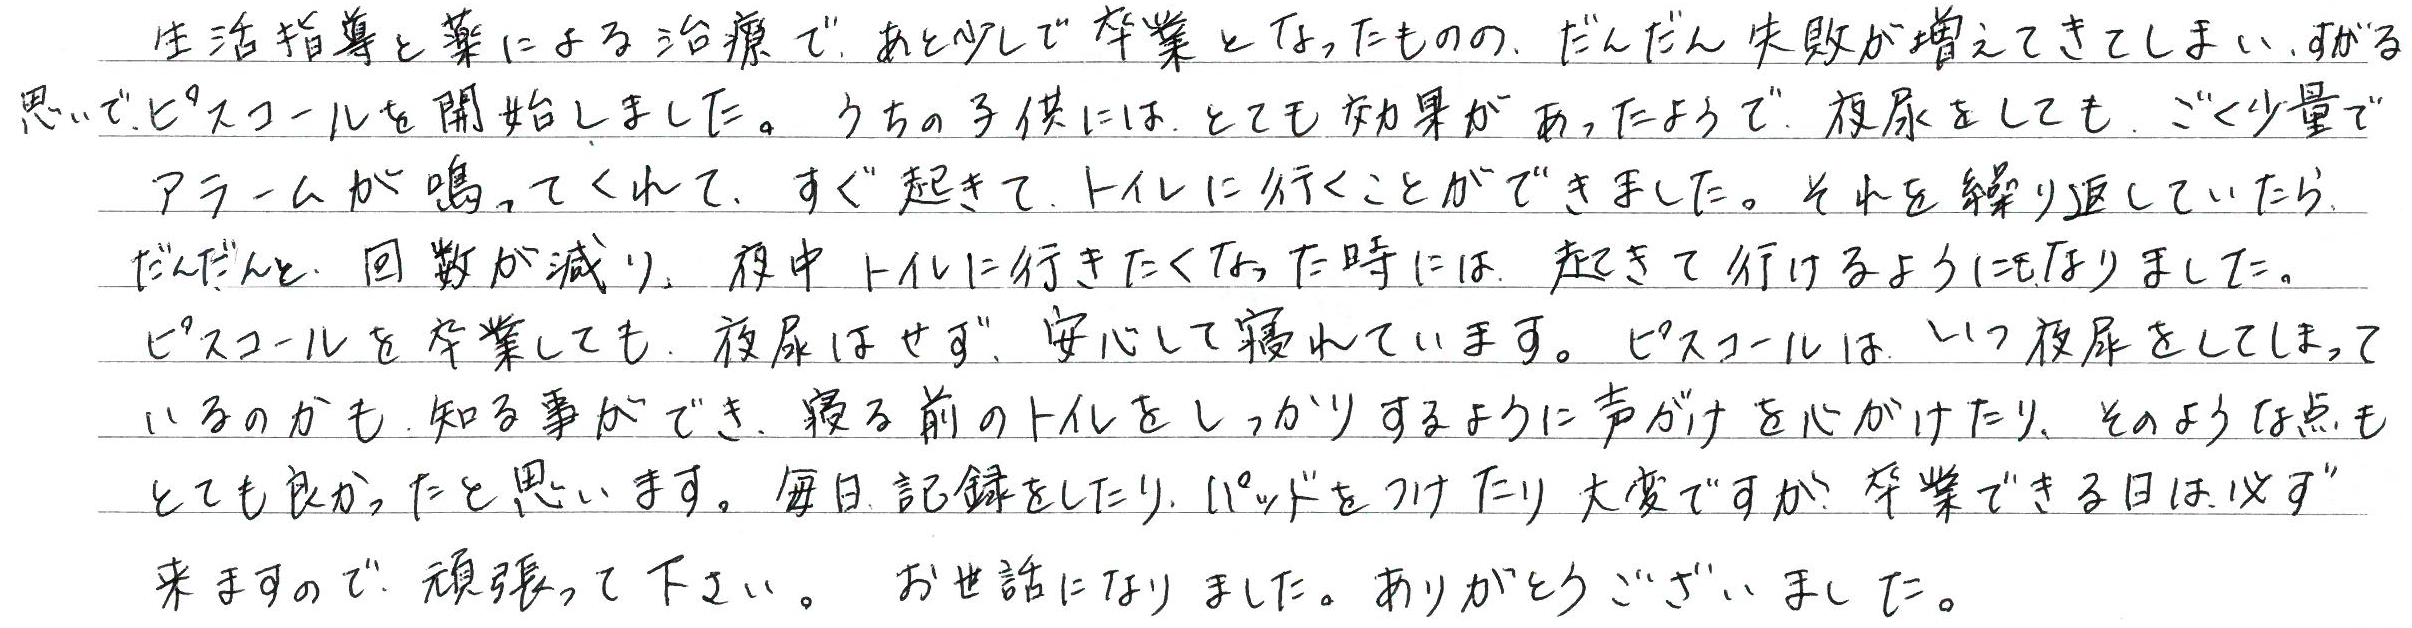 生活指導と薬による治療で、あと少しで卒業となったものの、だんだん失敗が増えてきてしまい、すがる
思いで、ピスコールを開始しました。うちの子供には、とても効果があったようで、夜尿をしても、ごく少量で
アラームが鳴ってくれて、すぐ起きて、トイレに行くことができました。それを繰り返していたら、
だんだんと、回数が減り、夜中トイレに行きたくなった時には、起きて行けるようにもなりました。
ピスコールを卒業しても、夜尿はせず、安心して寝れています。ピスコールは、いつ夜尿をしてしまって
いるのかも、知る事ができ、寝る前のトイレをしっかりするように声がけを心がけたり、そのような点も
とても良かったと思います。毎日、記録をしたり、パッドをつけたり大変ですが、卒業できる日は、必ず
来ますので、頑張って下さい。 お世話になりました。ありがとうございました。